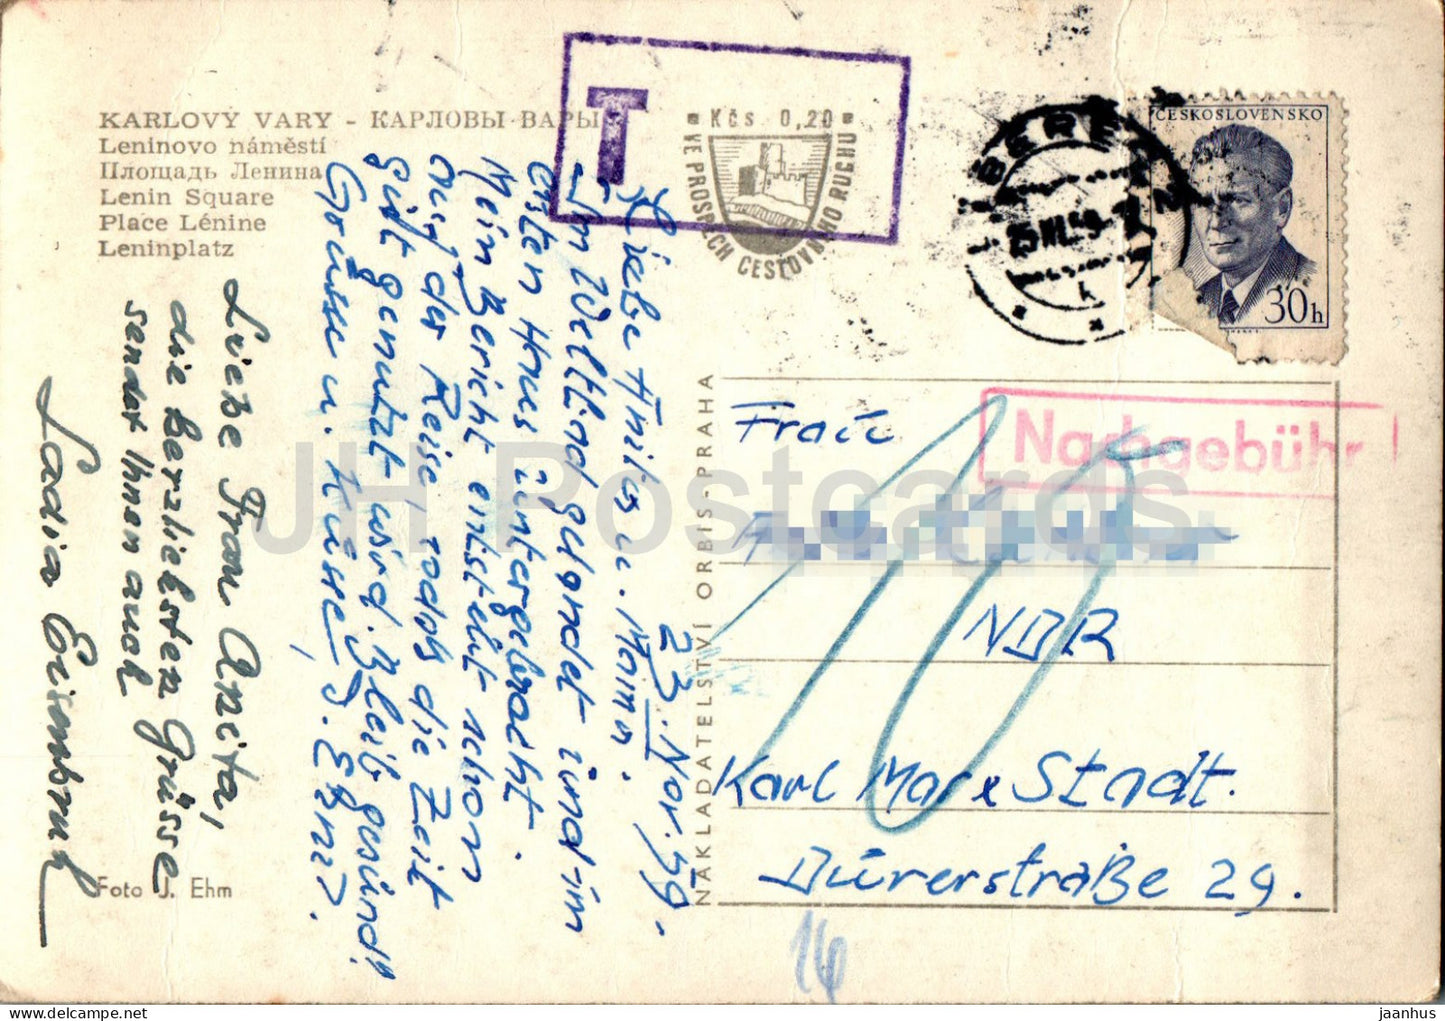 KARLOVY VARY - КАРЛОВЫ ВАРЫ
Leninovo náměstí
Площадь Ленина
Lenin Square
Place Lénine
Leninplatz
T
Kčs 0,20
VE PROSPĚCH CESTOVNÍHO RUCHU
ČESKOSLOVENSKO
30h
LIBEREC
Nachgebühr
10
NAKLADATELSTVÍ ORBIS-PRAHA
23. Nov. 59.
Liebe Anita u. Mann.
Im Weltbad gelandet und im
ersten Haus untergebracht.
Mein Bericht entsteht schon
auf der Reise, sodaß die Zeit
gut genutzt wird. Bleib gesund!
Grüsse u. Küsse,
Liebe Frau Anita,
die herzliebsten Grüsse
sendet Ihnen auch
Frau
Karl Marx Stadt.
Dürerstraße 29.
16
Foto J. Ehm
JH Postcards
delcampe.net
jaanhus